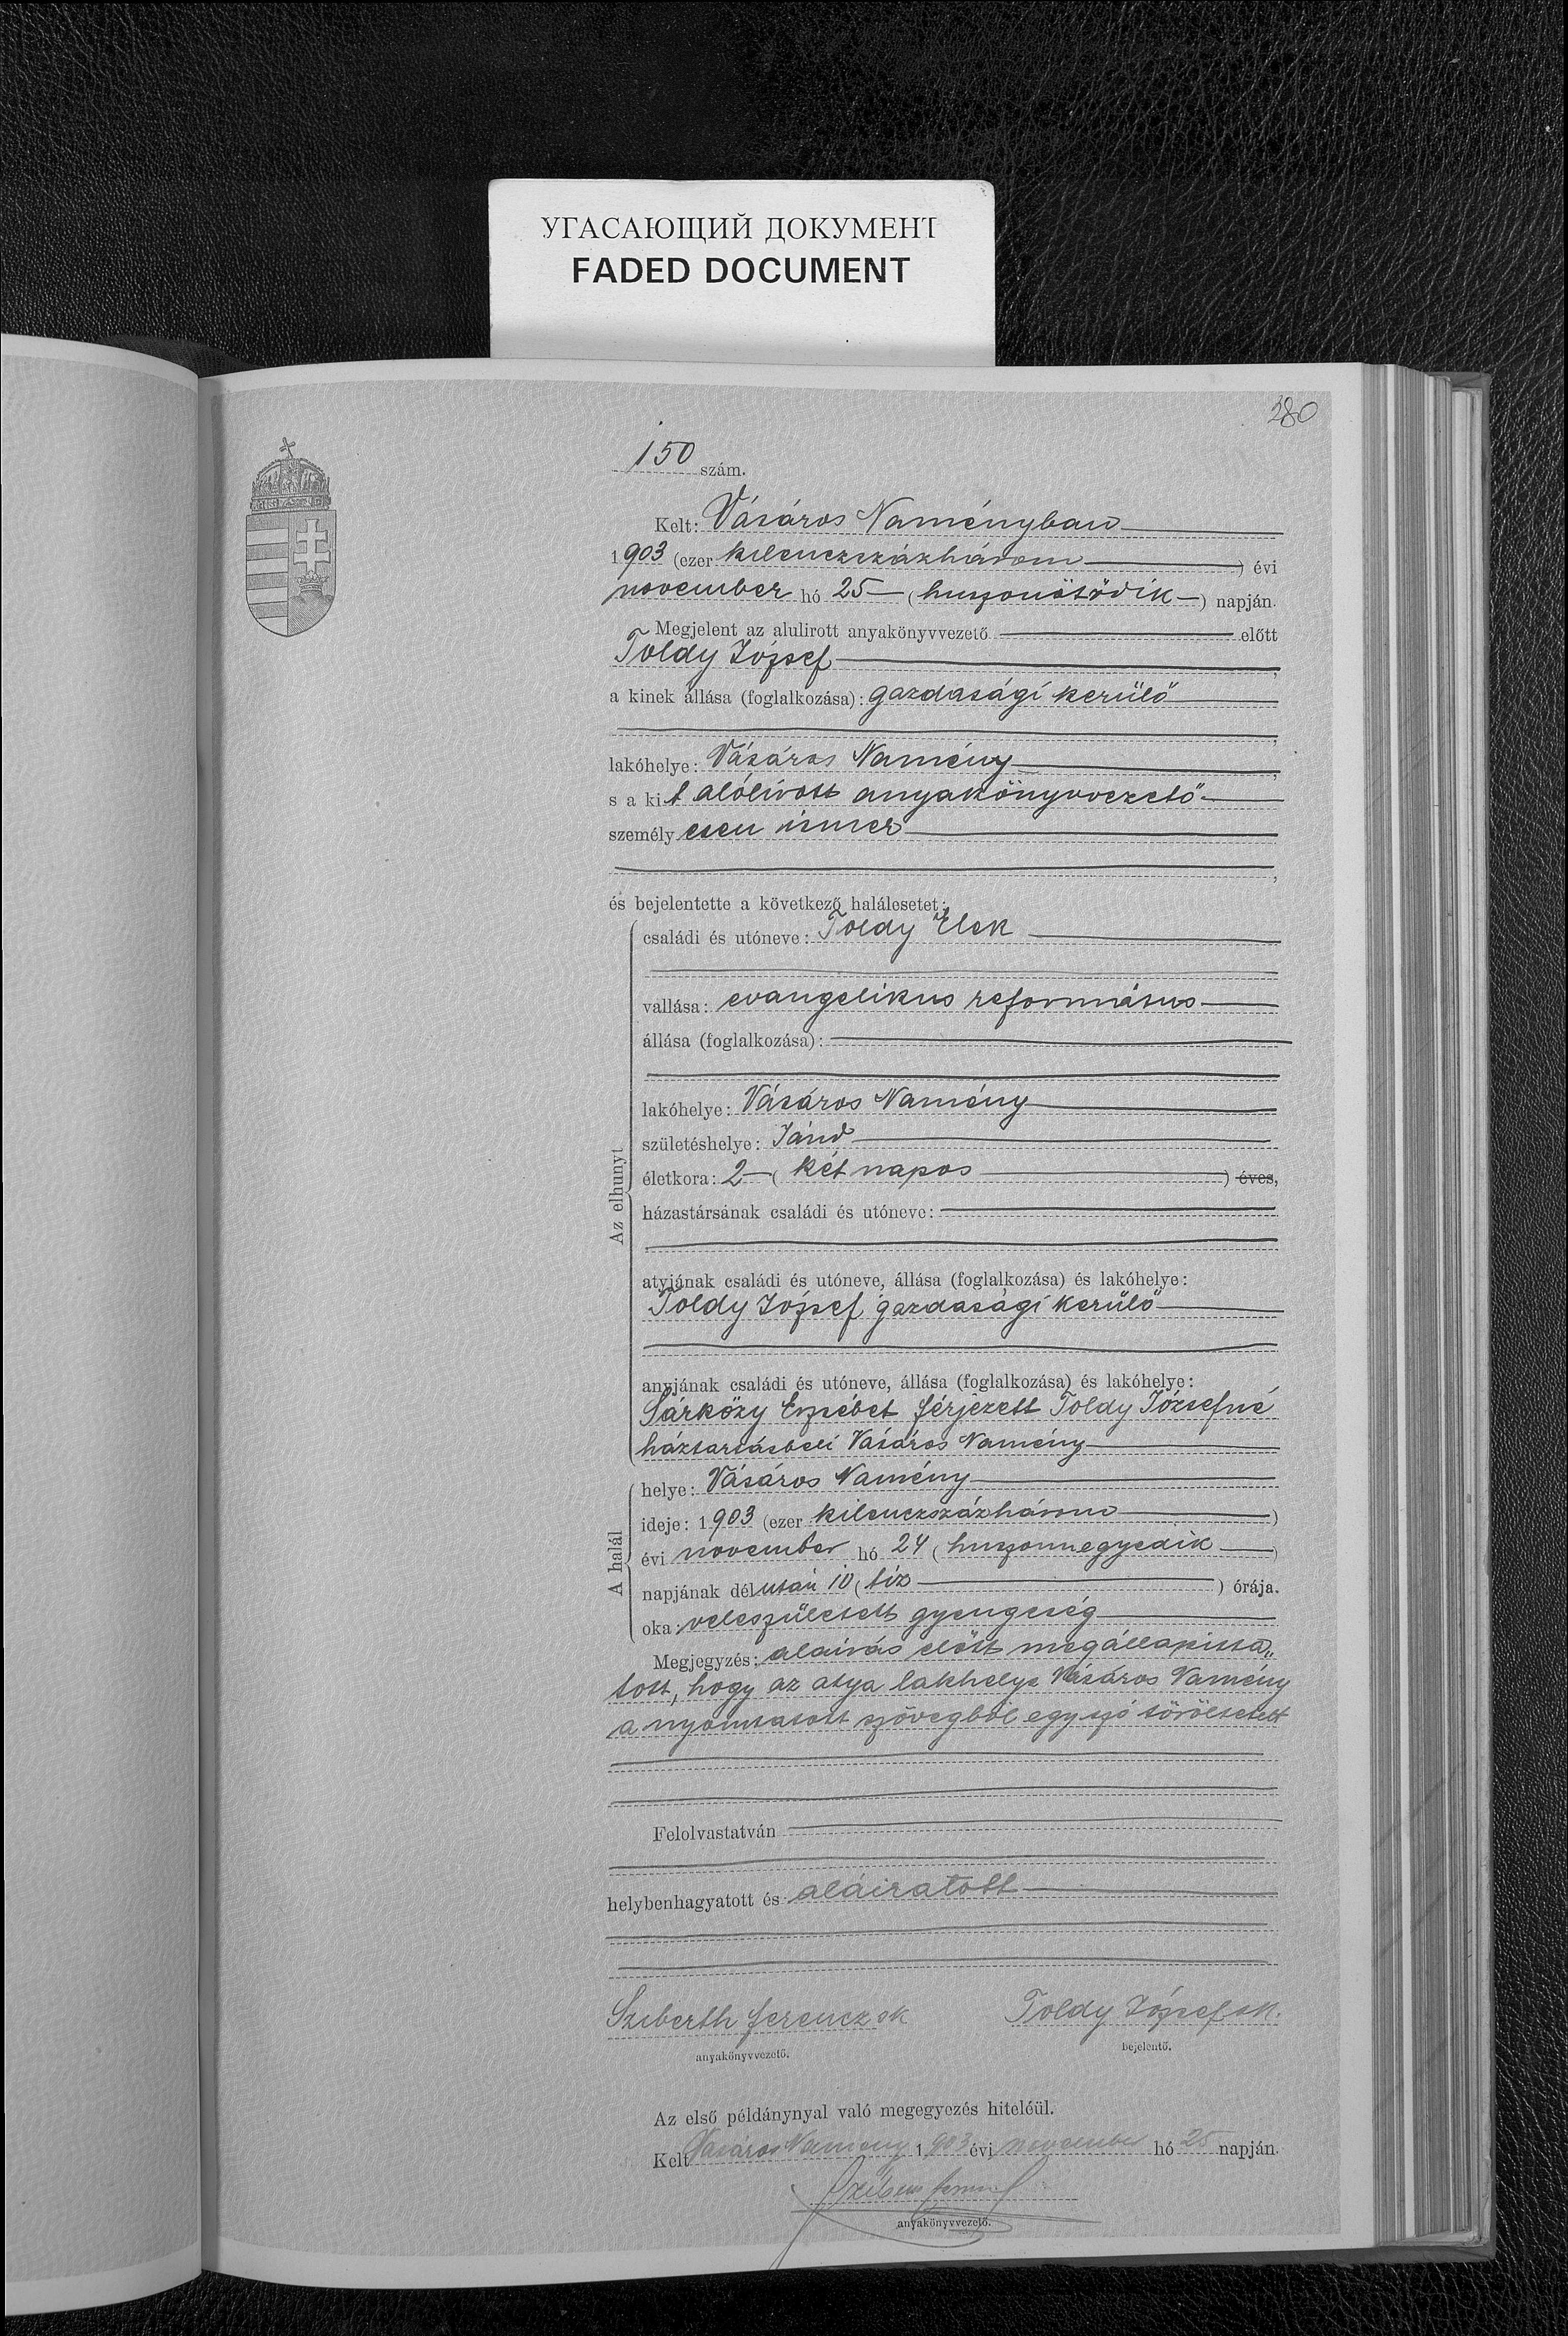 УГАСАЮЩИЙ ДОКУМЕНТ
FADED DOCUMENT
280
150 szám.
Kelt: Vásáros Naményban
1903 (ezer kilenczszázhárom) évi
november hó 25 (huszonötödik) napján.
Megjelent az alulirott anyakönyvvezető előtt
Toldy József,
a kinek állása (foglalkozása): gazdasági kerülő
,
lakóhelye: Vásáros Namény,
s a kit alólirott anyakönyvvezető
személyesen ismer
,
és bejelentette a következő halálesetet:
Az elhunyt
családi és utóneve: Toldy Elek
vallása: evangelikus református
állása (foglalkozása):
lakóhelye: Vásáros Namény
születéshelye: Jánd
életkora: 2 (két napos) éves,
házastársának családi és utóneve:
atyjának családi és utóneve, állása (foglalkozása) és lakóhelye:
Toldy József gazdasági kerülő
anyjának családi és utóneve, állása (foglalkozása) és lakóhelye:
Sárközy Erzsébet férjezett Toldy Józsefné
háztartásbeli Vásáros Namény
A halál
helye: Vásáros Namény
ideje: 1903 (ezer kilenczszázhárom)
évi november hó 24 (huszonnegyedik)
napjának délután 10 (tíz) órája.
oka: veleszületett gyengeség
Megjegyzés: alairás előtt megállapitta„
tott, hogy az atya lakhelye Vásáros Namény
a nyomtatott szövegből egy szó töröltetett
Felolvastatván
helybenhagyatott és aláiratott
Sziberth Ferencz sk Toldy József sk.
anyakönyvvezető. bejelentő.
Az első példánynyal való megegyezés hiteléül.
Kelt Vásáros Namény 1903 évi november hó 25 napján.
anyakönyvvezető.